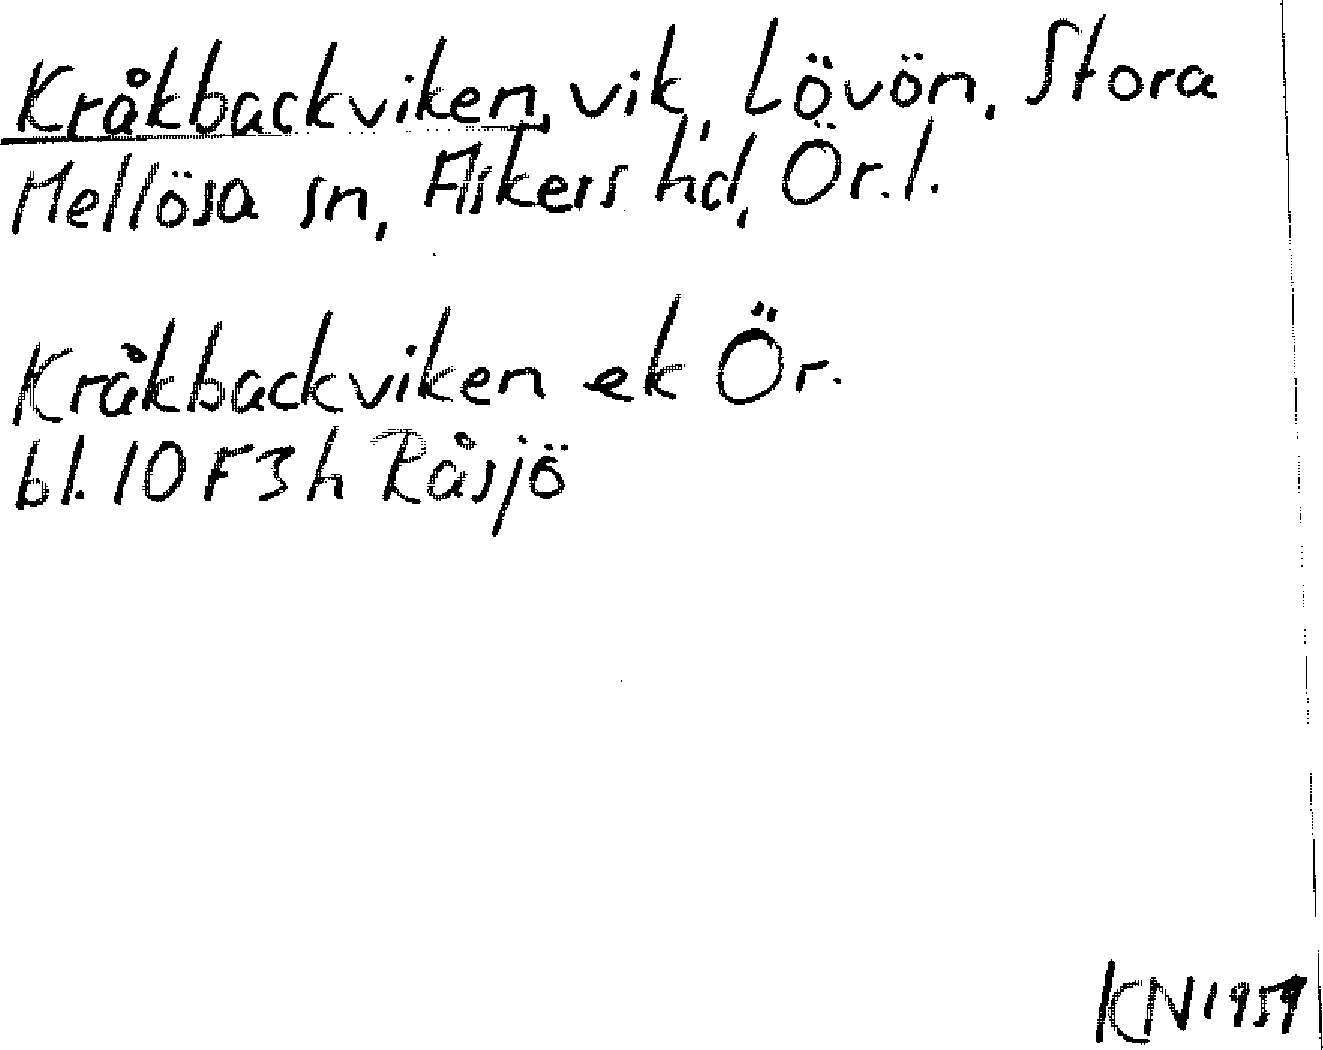 Kråkbackviken, vik, Lövön, Stora
Mellösa sn, Askers hd, Ör. l.
Kråkbackviken ek Ör.
bl. 10 F 3 h Råsjö
KN 1959